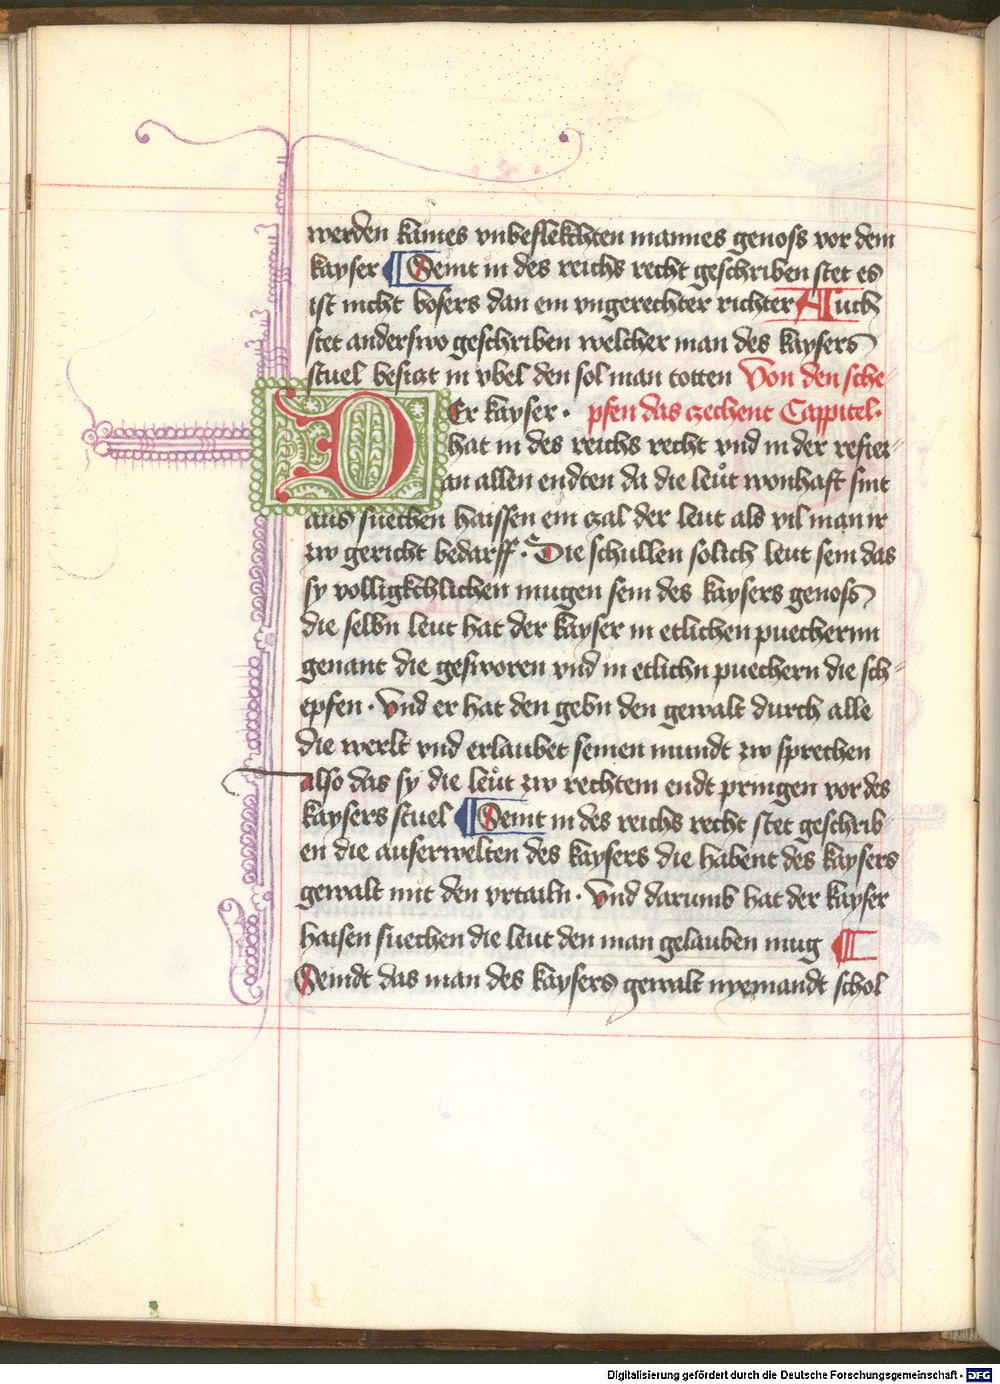 werden kaines vnbeflekchten mannes genoss vor dem
kayser Seint in des reichs recht geschriben stet es
ist nicht bosers dan ein vngerechter richter Auch
stet anderswo geschriben welcher man des kaysers
stuel besiczt in vbel den sol man totten Von den sche-
Er kayser · pfen das czechent Cappitel·
hat in des reichs recht vnd in der refier-
an allen endten da die leut wonhaft sint
aus suechen haissen ein czal der leut als vil man ir
zw gericht bedarff · Die schullen solich leut sein das
sy volligkchlichen mugen sein des kaysers genoss
die selbn leut hat der kayser in etlichen puechernn
genant die gesworen vnd in etlichn puechern die sch-
epfen · Vnd er hat den gebn den gewalt durch alle
die werlt vnd erlaubet seinen mundt zw sprechen
also das sy die leut zw rechtem endt pringen vor des
kaysers stuel Seint in des reichs recht stet geschrib
en die auserwelten des kaysers die habent des kaysers
gewalt mit den vrtailn · Vnd darumb hat der kayser
haisen suechen die leut den man gelauben mug
Seindt das man des kaysers gewalt nyemandt schol
Digitalisierung gefördert durch die Deutsche Forschungsgemeinschaft - DFG